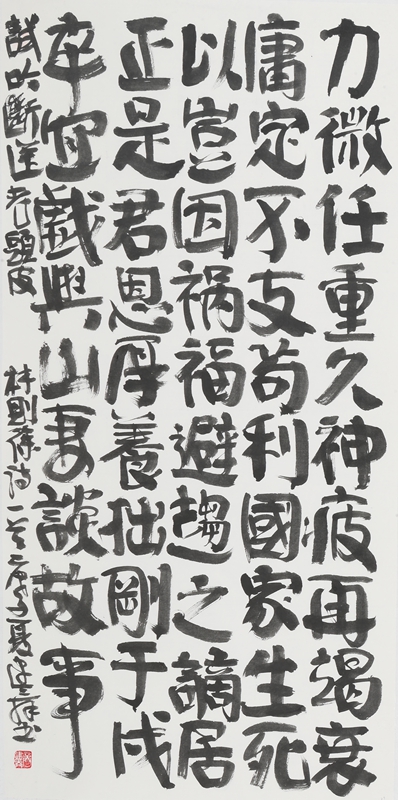 力微任重久神疲再竭衰
庸定不支苟利國家生死
以豈因祸福避趨之謫居
正是君恩厚養拙剛于戍
卒宜戲與山妻談故事
試吟斷送老頭皮 林則徐詩一首